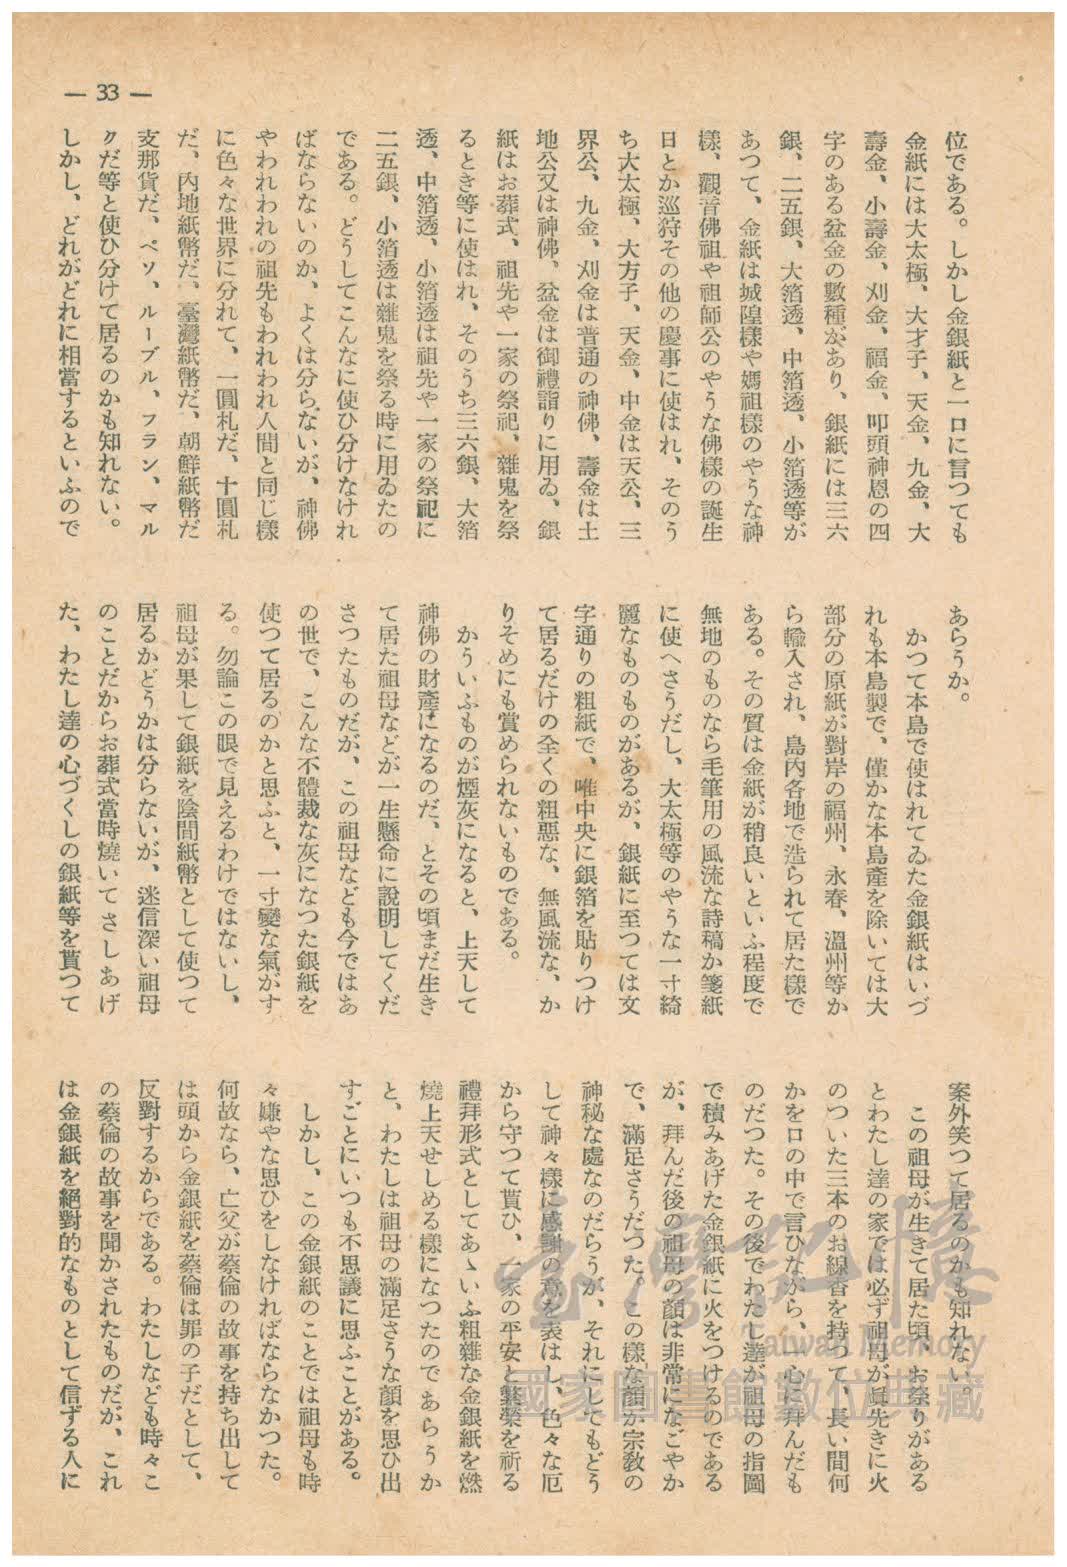 — 33 —
位である。しかし金銀紙と一口に言つても
金紙には大太極、大才子、天金、九金、大
壽金、小壽金、刈金、福金、叩頭神恩の四
字のある盆金の數種があり、銀紙には三六
銀、二五銀、大箔透、中箔透、小箔透等が
あつて、金紙は城隍樣や媽祖樣のやうな神
樣、觀音佛祖や祖師公のやうな佛樣の誕生
日とか巡狩その他の慶事に使はれ、そのう
ち大太極、大方子、天金、中金は天公、三
界公、九金、刈金は普通の神佛、壽金は土
地公又は神佛、盆金は御禮詣りに用ゐ、銀
紙はお葬式、祖先や一家の祭祀、雜鬼を祭
るとき等に使はれ、そのうち三六銀、大箔
透、中箔透、小箔透は祖先や一家の祭祀に
二五銀、小箔透は雜鬼を祭る時に用ゐたの
である。どうしてこんなに使ひ分けなけれ
ばならないのか、よくは分らないが、神佛
やわれわれの祖先もわれわれ人間と同じ樣
に色々な世界に分れて、一圓札だ、十圓札
だ、內地紙幣だ、臺灣紙幣だ、朝鮮紙幣だ
支那貨だ、ペソ、ルーブル、フラン、マル
クだ等と使ひ分けて居るのかも知れない。
しかし、どれがどれに相當するといふので
あらうか。
かつて本島で使はれてゐた金銀紙はいづ
れも本島製で、僅かな本島產を除いては大
部分の原紙が對岸の福州、永春、溫州等か
ら輸入され、島內各地で造られて居た樣で
ある。その質は金紙が稍良いといふ程度で
無地のものなら毛筆用の風流な詩稿か箋紙
に使へさうだし、大太極等のやうな一寸綺
麗なものものがあるが、銀紙に至つては文
字通りの粗紙で、唯中央に銀箔を貼りつけ
て居るだけの全くの粗惡な、無風流な、か
りそめにも賞められないものである。
かういふものが煙灰になると、上天して
神佛の財產になるのだ、とその頃まだ生き
て居た祖母などが一生懸命に說明してくだ
さつたものだが、この祖母なども今ではあ
の世で、こんな不體裁な灰になつた銀紙を
使つて居るのかと思ふと、一寸變な氣がす
る。勿論この眼で見えるわけではないし、
祖母が果して銀紙を陰間紙幣として使つて
居るかどうかは分らないが、迷信深い祖母
のことだからお葬式當時燒いてさしあげ
た、わたし達の心づくしの銀紙等を貰つて
案外笑つて居るのかも知れない。
この祖母が生きて居た頃、お祭りがある
とわたし達の家では必ず祖母が眞先きに火
のついた三本のお線香を持つて、長い間何
かを口の中で言ひながら、一心に拜んだも
のだつた。その後でわたし達が祖母の指圖
で積みあげた金銀紙に火をつけるのである
が、拜んだ後の祖母の顏は非常になごやか
で、滿足さうだつた。この樣な顏が宗敎の
神秘な處なのだらうが、それにしてもどう
して神々樣に感謝の意を表はし、色々な厄
から守つて貰ひ、一家の平安と繁榮を祈る
禮拜形式としてあゝいふ粗雜な金銀紙を燃
燒上天せしめる樣になつたのであらうか
と、わたしは祖母の滿足さうな顏を思ひ出
すごとにいつも不思議に思ふことがある。
しかし、この金銀紙のことでは祖母も時
々嫌やな思ひをしなければならなかつた。
何故なら、亡父が蔡倫の故事を持ち出して
は頭から金銀紙を蔡倫は罪の子だとして、
反對するからである。わたしなども時々こ
の蔡倫の故事を聞かされたものだが、これ
は金銀紙を絕對的なものとして信ずる人に
臺灣記憶
Taiwan Memory
國家圖書館數位典藏